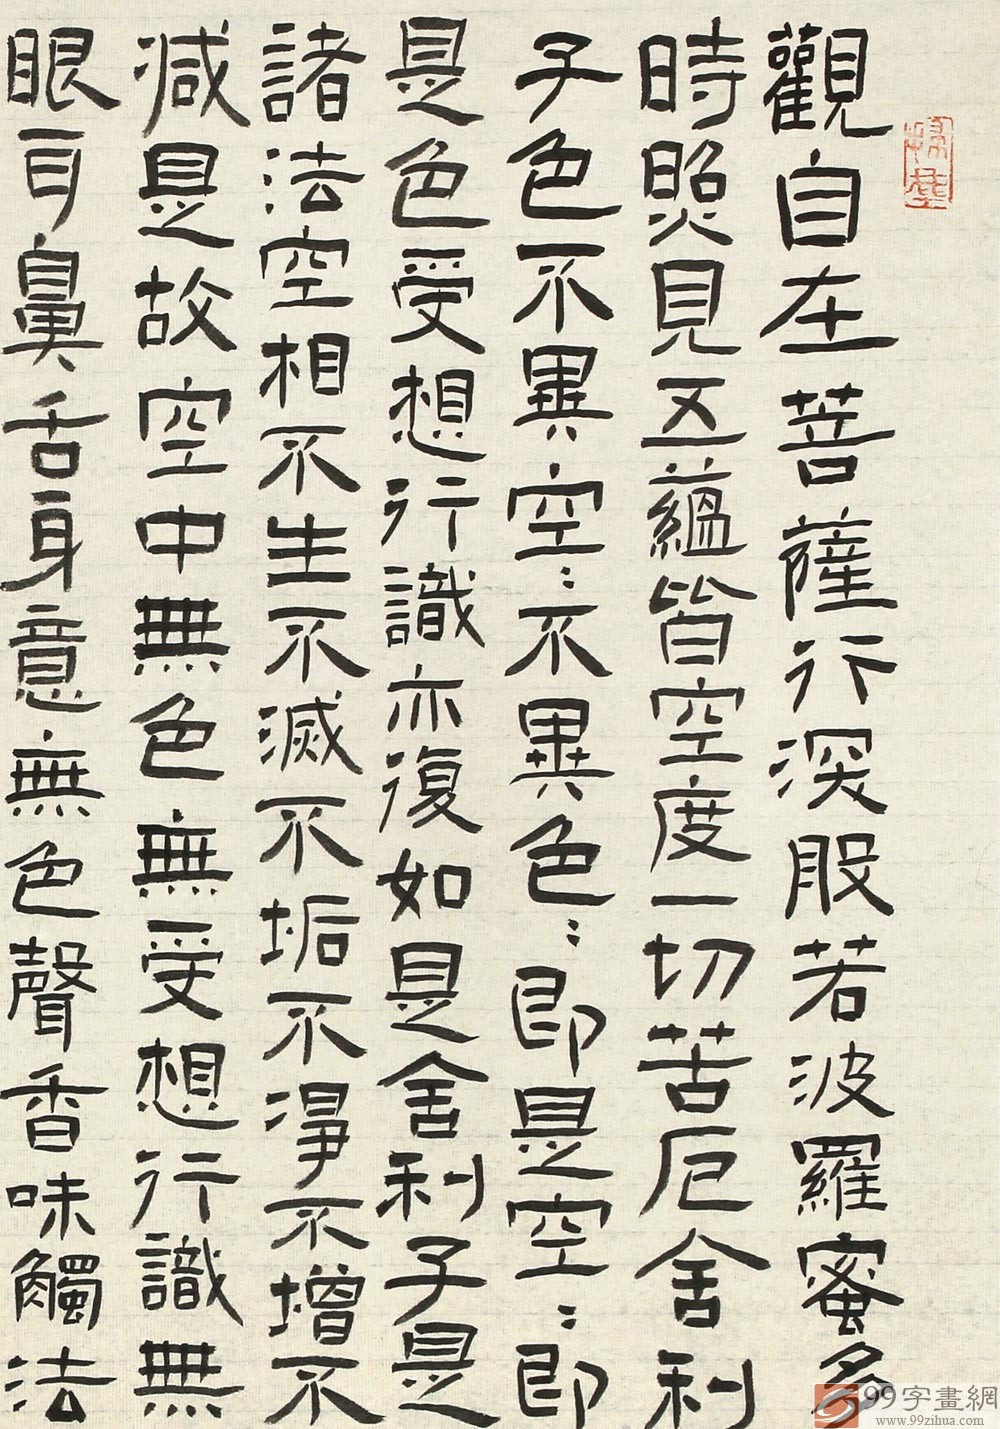 觀自在菩薩行深般若波羅蜜多
時照見五蘊皆空度一切苦厄舍利
子色不異空：不異色：即是空：即
是色受想行識亦復如是舍利子是
諸法空相不生不滅不垢不淨不增不
減是故空中無色無受想行識無
眼耳鼻舌身意無色聲香味觸法
99字畫網
www.99zihua.com